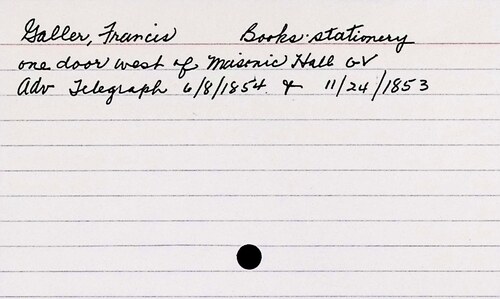 Galler, Francis Books·stationery
one door west of Masonic Hall GV
Adv Telegraph 6/8/1854 & 11/24/1853